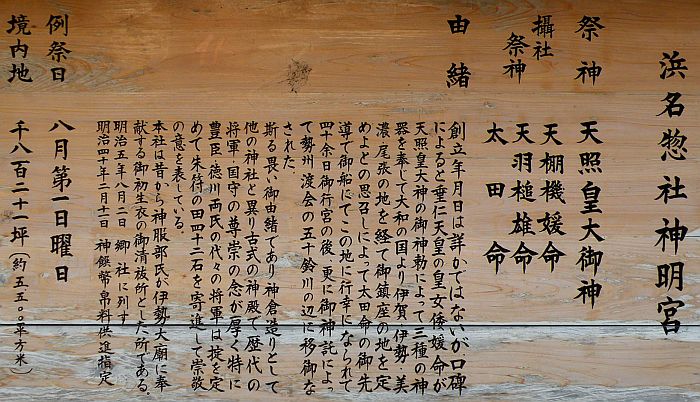 浜名惣社神明宮
祭神 天照皇大御神
攝社
祭神 天棚機媛命
天羽槌雄命
太田命
由緒
創立年月日は詳かではないが、口碑
によると垂仁天皇の皇女倭媛命が
天照皇大神の御神勅によって三種の神
器を奉じて大和の国より伊賀、伊勢、美
濃、尾張の地を経て御鎮座の地を定
めよとの思召しによって太田命の御先
導で御船にてこの地に行幸になられて
四十余日御行宮の後、更に御神託によっ
て勢州渡会の五十鈴川の辺に移御な
された
斯る畏い御由緒であり神倉造りとして
他の神社と異り古式の神殿で、歴代の
将軍・国守の尊崇の念が厚く特に
豊臣・徳川両氏の代々の将軍は掟を定
めて朱符の田四十二石を寄進して崇敬
の意を表している。
本社は昔から神服部氏が伊勢大廟に奉
献する御初生衣の御清祓所とした所である。
明治五年八月二日 郷社に列す
明治四十年二月十一日 神饌幣帛料供進指定
例祭日 八月第一日曜日
境内地 千八百二十一坪（約五五〇〇平方米）